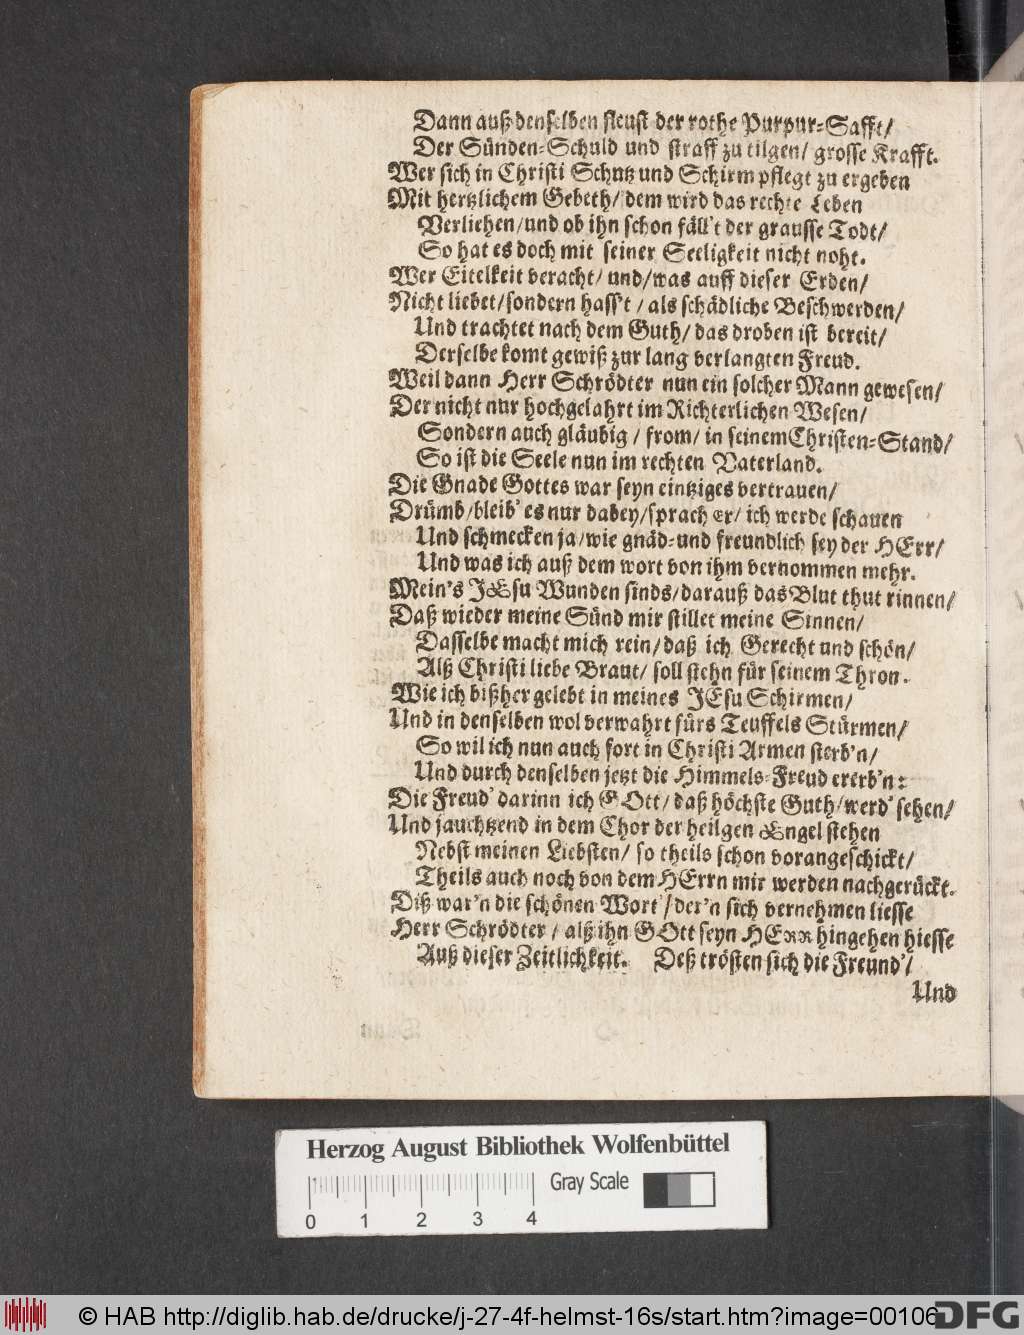 Dann auß denselben fleust der rothe Purpur-Safft/
Der Sünden-Schuld und straff zu tilgen/ grosse Krafft.
Wer sich in Christi Schutz und Schirm pflegt zu ergeben
Mit hertzlichem Gebeth/ dem wird das rechte Leben
Verliehen/ und ob ihn schon fäll't der grausse Todt/
So hat es doch mit seiner Seeligkeit nicht noht.
Wer Eitelkeit veracht/ und/ was auff dieser Erden/
Nicht liebet/ sondern hass't / als schädliche Beschwerden/
Und trachtet nach dem Guth/ das droben ist bereit/
Derselbe komt gewiß zur lang verlangten Freud.
Weil dann Herr Schrödter nun ein solcher Mann gewesen/
Der nicht nur hochgelahrt im Richterlichen Wesen/
Sondern auch gläubig / from/ in seinem Christen-Stand/
So ist die Seele nun im rechten Vaterland.
Die Gnade Gottes war seyn eintziges vertrauen/
Drümb/ bleib' es nur dabey/ sprach er/ ich werde schauen
Und schmecken ja/ wie gnäd- und freundlich sey der HErr/
Und was ich auß dem wort von ihm vernommen mehr.
Mein's JEsu Wunden sinds/ darauß das Blut thut rinnen/
Daß wieder meine Sünd mir stillet meine Sinnen/
Dasselbe macht mich rein/ daß ich Gerecht und schön/
Alß Christi liebe Braut/ soll stehn für seinem Thron.
Wie ich bißher gelebt in meines JEsu Schirmen/
Und in denselben wol verwahrt fürs Teuffels Stürmen/
So wil ich nun auch fort in Christi Armen sterb'n/
Und durch denselben jetzt die Himmels-Freud ererb'n:
Die Freud' darinn ich GOtt/ daß höchste Guth/ werd' sehen/
Und jauchtzend in dem Chor der heilgen Engel stehen
Nebst meinen Liebsten/ so theils schon vorangeschickt/
Theils auch noch von dem HErrn mir werden nachgerückt.
Diß war'n die schönen Wort'/ der'n sich vernehmen liesse
Herr Schrödter / alß ihn GOtt seyn HERR hingehen hiesse
Auß dieser Zeitlichkeit. Deß trösten sich die Freund'/
Und
Herzog August Bibliothek Wolfenbüttel
Gray Scale
0 1 2 3 4
© HAB http://diglib.hab.de/drucke/j-27-4f-helmst-16s/start.htm?image=00106
DFG